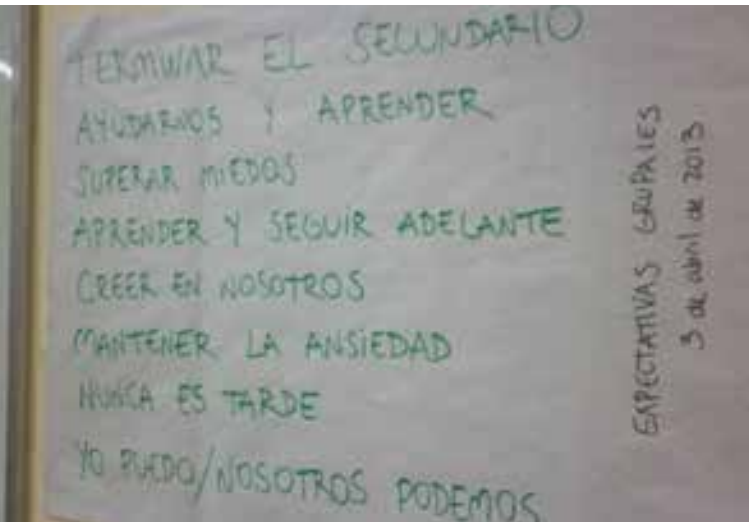 TERMINAR EL SECUNDARIO
AYUDARNOS Y APRENDER
SUPERAR MIEDOS
APRENDER Y SEGUIR ADELANTE
CREER EN NOSOTROS
MANTENER LA ANSIEDAD
NUNCA ES TARDE
YO PUEDO/NOSOTROS PODEMOS
EXPECTATIVAS GRUPALES
3 de abril de 2013